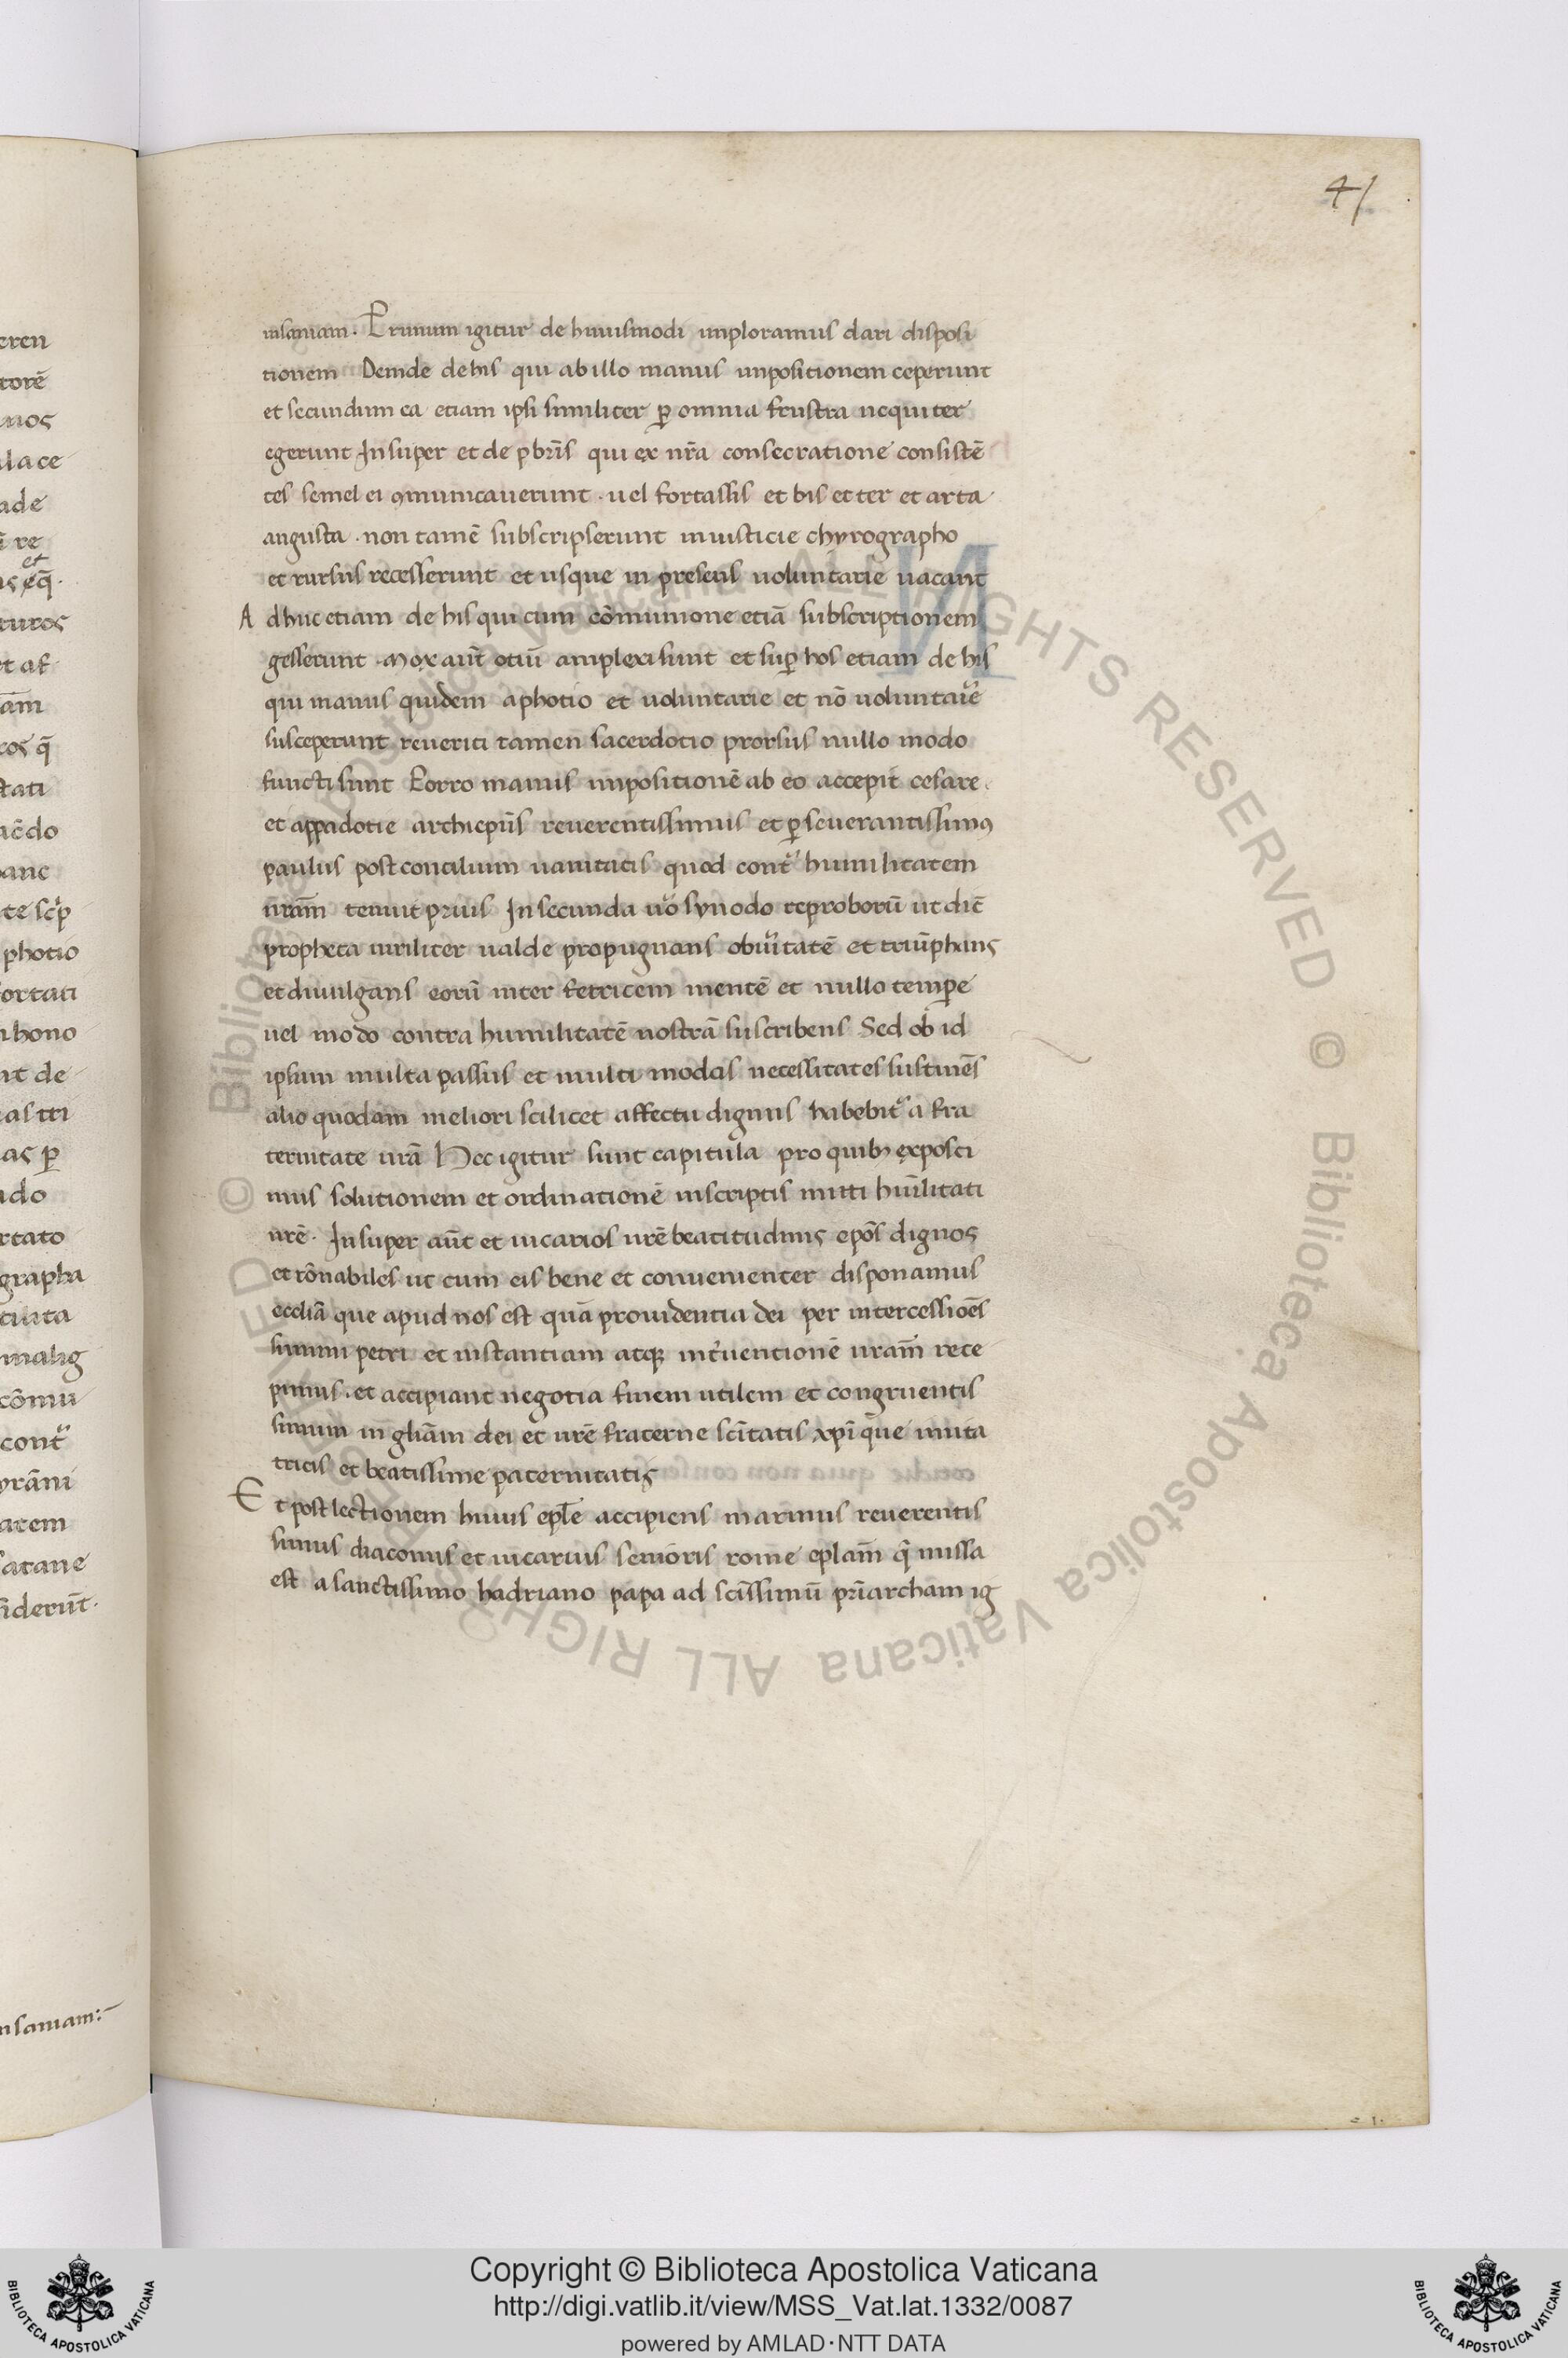 41
insaniam. Primum igitur de huiusmodi imploramus dari disposi
tionem Deinde de his qui ab illo manus impositionem ceperunt
et secundum ea etiam ipsi similiter ꝑ omnia frustra nequiter
egerunt Insuper et de pbr̄is qui ex nr̄a consecratione consistē
tes semel ei ꝯmunicauerunt. uel fortassis et bis et ter et arta
angusta. non tamē subscripserunt iniusticie chyrographo
et rursus recesserunt et usque in presens uoluntarie uacant
Adhuc etiam de his qui cum cōmunione etiā subscriptionem
gesserunt. Mox aūt otiū amplexi sunt et suꝑ hos etiam de his
qui manus quidem a photio et uoluntarie et nō uoluntarie
susceperunt reueriti tamen sacerdotio prorsus nullo modo
functi sunt Porro manus impositionē ab eo accepit cesare
et appadotie archiepūs reuerentissimus et ꝑseuerantissimꝰ
paulus post concilium uanitatis quod contͣ humilitatem
nr̄am tenuit prius In secunda uͦo synodo reproborū ut dic̄
propheta uiriliter ualde propugnans ob uītatē et triūphans
et diuulgans eorū inter fetricem mentē et nullo temꝑe
uel modo contra humilitatē nostrā suscribens Sed ob id
ipsum multa passus et multi modas necessitates sustinēs
alio quodam meliori scilicet affectu dignus habebit᷑ a fra
ternitate ur̄a Hec igitur sunt capitula pro quibꝫ exposci
mus solutionem et ordinationē inscriptis mitti hūilitati
nr̄e. Insuper aūt et uicarios ur̄e beatitudinis epōs dignos
et rōnabiles ut cum eis bene et conuenienter disponamus
eccliā que apud nos est quā prouidentia dei per intercessioēs
summi petri et instantiam atqꝫ int̓uentionē ur̄am rece
pimus. et accipiant negotia finem utilem et congruentis
simum in gl̄iam dei et ur̄e fraterne sc̄itatis xp̄i que imita
tricis et beatissime paternitatis
Et post lectionem huius epl̄e accipiens marinus reuerentis
simus diaconus et uicarius senioris rome epl̄am q̄ missa
est a sanctissimo hadriano papa ad sc̄issimū pr̄iarcham ig
nsaniam:
Copyright © Biblioteca Apostolica Vaticana
http://digi.vatlib.it/view/MSS_Vat.lat.1332/0087
powered by AMLAD·NTT DATA